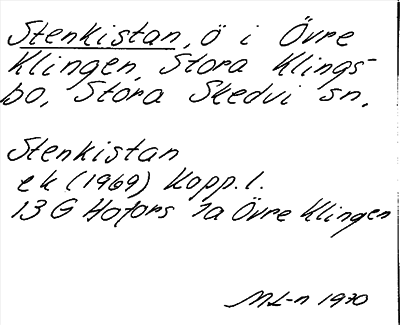 Stenkistan, ö i Övre
Klingen, Stora Klings-
bo, Stora Skedvi sn.
Stenkistan
ek (1969) Kopp. l.
13 G Hofors 1a Övre Klingen
ML-n 1970